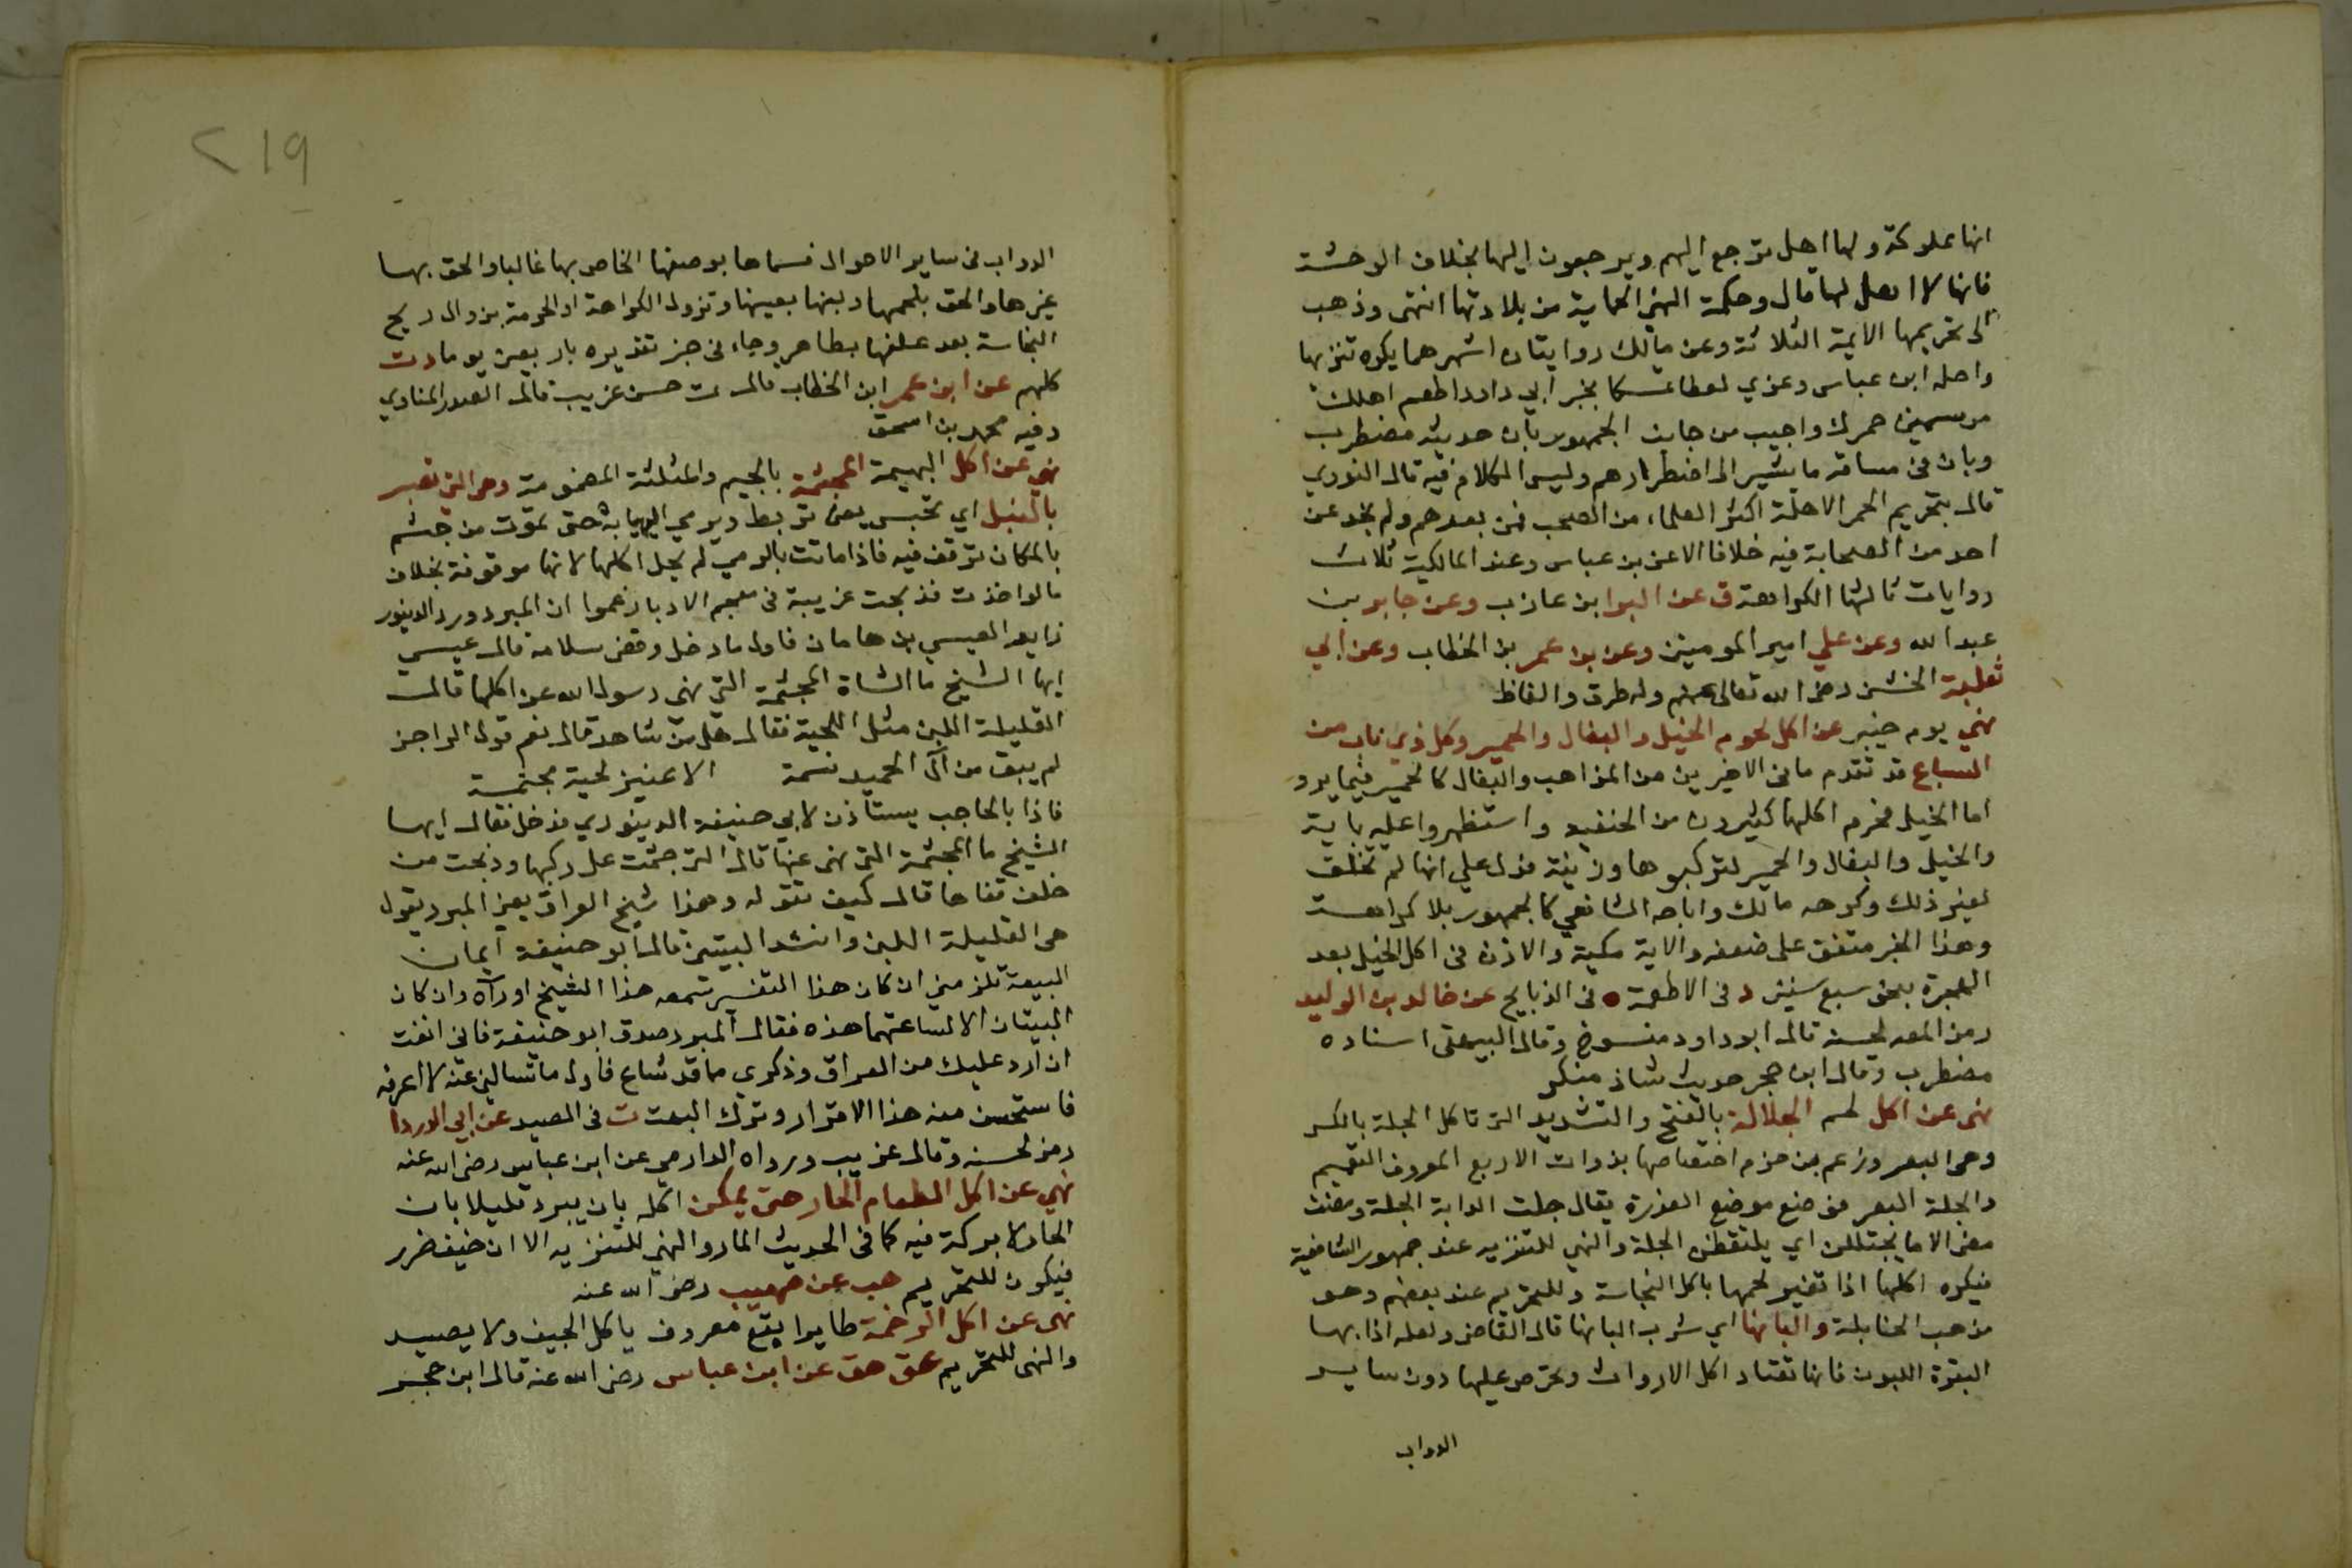 انها مملوكة ولها اهل ترجع اليهم ويرجعون اليها بخلاف الوحشة
فانها لا اهل لها قال وحكمة النهي الحماية من بلادتها انتهى وذهب
الى تحريمها الايمة الثلاثة وعن مالك روايتان اشهرهما يكره تنزيها
واحله ابن عباس وعزي لعطا تمسكا بخبر ابي داود اطعم اهلك
من سمين حمرك واجيب من جانب الجمهور بان حديثه مضطرب
وبان في مساقه ما يشير الى اضطرارهم وليس الكلام فيه قال النوري
قال بتحريم الحمر الاهلة اكثر العلماء من الصحب فمن بعدهم ولم نجد عن
احد من الصحابة فيه خلافا الا عن بن عباس وعند المالكية ثلاث
روايات ثالثها الكراهة ق عن البرا بن عازب وعن جابر بن
عبد الله وعن علي امير المومنين وعن بن عمر بن الخطاب وعن ابي
ثعلبة الخشني رضي الله تعالى عنهم وله طرق والفاظ
نهي يوم خيبر عن اكل لحوم الخيل والبغال والحمير وكل ذي ناب من
السباع قد تقدم ما في الاخيرين من المذاهب والبغال كالحمير فيما يرد
اما الخيل فحرم اكلها كثيرون من الحنفيه واستظهروا عليه باية
والخيل والبغال والحمير لتركبوها وزينة فدل علي انها لم تخلق
لغير ذلك وكرهه مالك واباحه الشافعي كالجمهور بلا كراهة
وهذا الخبر متفق على ضعفه والاية مكية والاذن في اكل الخيل بعد
الهجرة بنحو سبع سنين د في الاطعمة ه في الذبايح عن خالد بن الوليد
رمز المص لحسنه قال ابو داود منسوخ وقال البيهقي اسناده
مضطرب وقال ابن حجر حديث شاذ منكر
نهى عن اكل لحم الجلالة بالفتح والتشديد التي تاكل الجلة بالكسر
وهي البعر وزعم بن حزم اختصاصها بذوات الاربع المعروف التعميم
والجلة البعر فوضع موضع العذرة يقال جلت الدابة الجلة
الاما يجتللن اي يلتقطن الجلة والنهي للتنزيه عند جمهور الشافعية
فيكره اكلها اذا تغير لحمها باكل النجاسة وللتحريم عند بعضهم وهو
مذهب الحنابلة والبانها اي شرب البانها قال القاضي ولعله اذا بها
البقرة اللبون فانها تعتاد اكل الارواث وتحرص عليها دون ساير
الدواب
٢١٩
الدواب في ساير الاحوال فسماها بوصفها الخاص بها غالبا والحق بها
غيرها والحق بلحمها ولبنها بعينها وتزول الكراهة او الحرمة بزوال ريح
النجاسة بعد علفها بطاهر وجاء في خبر تقديره باربعين يوما د ت
كلهم عن ابن عمر ابن الخطاب قال ت حسن غريب قال الصدر المناوي
وفيه محمد بن اسحق
نهي عن اكل البهيمة المجثمة بالجيم والمثلثة المضمومة وهي التي تصبر
بالنبل اي تحبس يعني تربط ويرمي اليها به حتى تموت من جثم
بالمكان توقف فيه فاذا ماتت بالرمي لم يحل اكلها لانها موقوذة بخلاف
ما لو اخذت فذبحت غريبة في معجم الادبا زعموا ان المبرد ورد الدينور
زايرا لعيسي بن هامان فاول ما دخل وقضى سلامه قال عيسى
ايها الشيخ ما الشاة المجثمة التي نهى رسول الله عن اكلها قال
القليلة اللبن مثل اللجبة فقال هل من شاهد قال نعم قول الراجز
لم يبق من آل الحميد نسمة   الا عنيز لجبة مجثمة
فاذا بالحاجب يستاذن لابي حنيفة الدينوري فدخل فقال ايها
الشيخ ما المجثمة التي نهى عنها قال التي جثمت على ركبها وذبحت من
خلف قفاها قال كيف تقوله وهذا شيخ العراق يعني المبرد يقول
هي القليلة اللبن وانشد البيتين قال ابو حنيفة ايمان
البيعة تلزمني ان كان هذا التفسير سمعه هذا الشيخ او رآه وان كان
البيتان الا لساعتهما هذه فقال المبرد صدق ابو حنيفة فاني انفت
ان ارد عليك من العراق وذكري ما قد شاع فاول ما تسالني عنه لا اعرفه
فاستحسن منه هذا الاقرار وترك البهت ت في الصيد عن ابي الدردا
رمز لحسنه وقال غريب ورواه الدارمي عن ابن عباس رضي الله عنه
نهي عن اكل الطعام الحار حتى يمكن اكله بان يبرد قليلا بان
الحار لا بركة فيه كما في الحديث المار والنهي للتنزيه الا ان خيف ضرر
فيكون للتحريم هب عن صهيب رضي الله عنه
نهى عن اكل الرخمة طاير ابقع معروف ياكل الجيف ولا يصيد
والنهي للتحريم عق هق عن ابن عباس رضي الله عنه قال ابن حجر